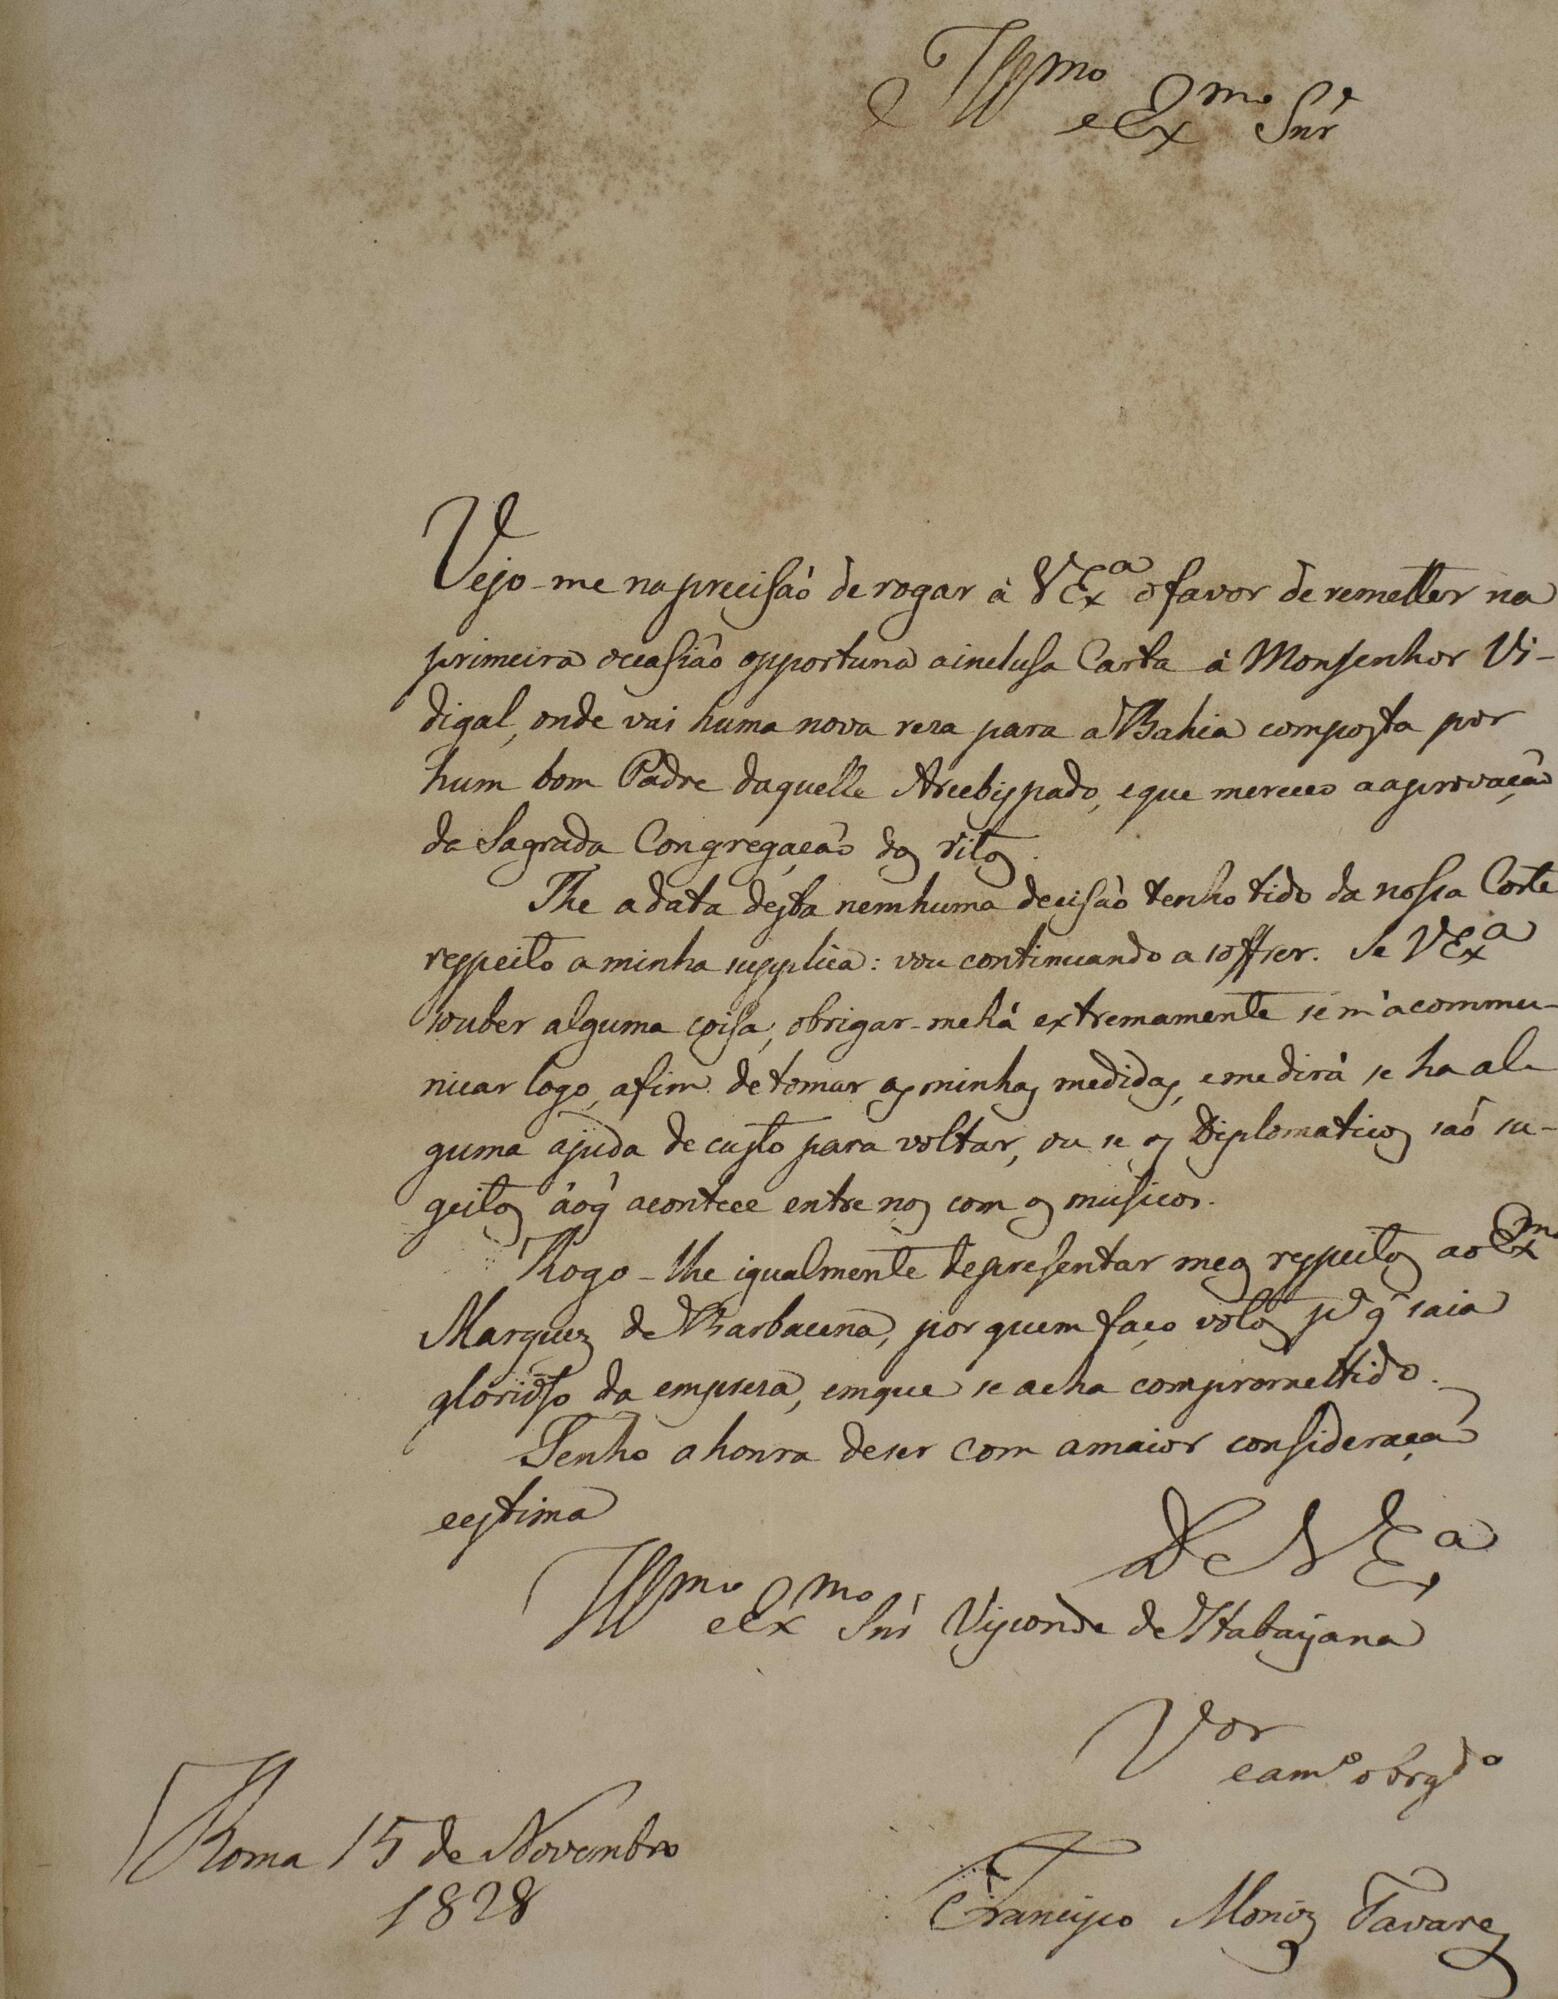 Illmo e Exmo Snr'e
Vejo-me na precisaõ de rogar à VExa o favor de remetter na
primeira occasiaõ opportuna a inclusa Carta á Monsenhor Vi-
digal, onde vai huma nova reza para a Bahia composta por
hum bom Padre daquelle Arcebispado, e que mereceo a aprovaçaõ
da Sagrada Congregaçaõ dos ritos.
The a data desta nemhuma decisaõ tenho tido da nossa Corte
respeito a minha supplica: vou continuando a soffrer. Se VExa
souber alguma coisa, obrigar-me há extremamente se m'a commu-
nicar logo, afim de tomar as minhas medidas, e me dirá se ha al-
guma ajuda de custo para voltar, ou se os Diplomaticos saõ su-
geitos áo q̃ acontece entre nos com os musicos.
Rogo-lhe igualmente de presentar meos respeitos ao Exmo
Marquez de Barbacena, por quem faço votos pa q̃ saia
glorioso da empreza, em que se acha comprometido.
Tenho a honra de ser com a maior consideraçaõ
e estima
De VExa
Illmo e Exmo Snr' Visconde de Itabayana
Vor
e amo obrgdo
Roma 15 de Novembro
1828
Francisco Moniz Tavares